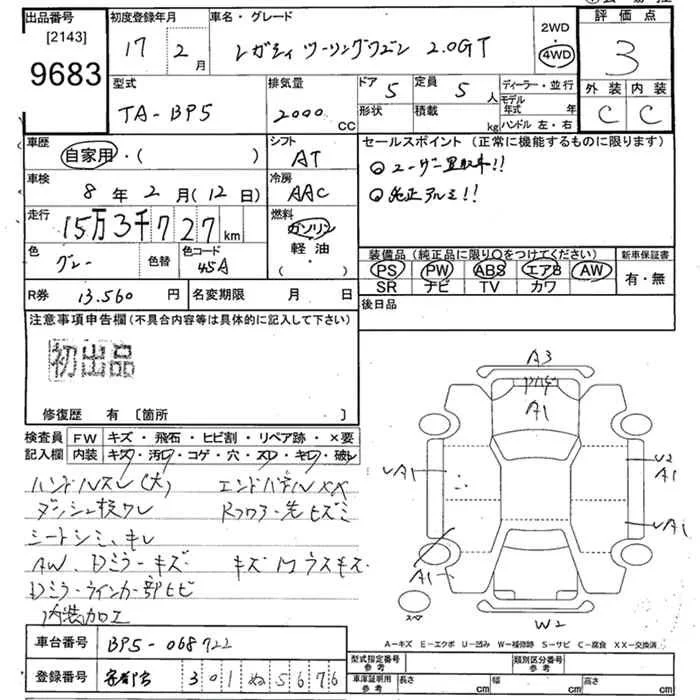 出品番号 初度登録年月 車名・グレード 2WD 評価点
[2143] 17 2月 レガシィ ツーリングワゴン 2.0GT 4WD 3
9683
型式 排気量 ドア 5 定員 5人 ディーラー・並行 外装 内装
TA-BP5 2000cc 形状 積載 kg モデル年式 年 C C
ハンドル 左・右
車歴 シフト セールスポイント(正常に機能するものに限ります)
自家用・( ) AT ユーザー買取車!!
車検 冷房 純正アルミ!!
8年 2月(12日) AAC
走行 燃料
15万3千727km ガソリン
色 色替 色コード 軽油 装備品(純正品に限り○をつけてください) 新車保証書
グレー 45A ( ・ ) PS PW ABS エアB AW 有・無
SR ナビ TV カワ
R券 13.560円 名変期限 月 日 後日品
注意事項申告欄(不具合内容等は具体的に記入して下さい)
初出品
修復歴 有 [箇所 ]
検査員 FW キズ・飛石・ヒビ割・リペア跡・×要
記入欄 内装 キズ・汚レ・コゲ・穴・スレ・キレ・破レ
ハンドルスレ(大) エンドパネルXX
シートシミ、キレ
AW、Dミラーキズ
Dミラーウインカー部ヒビ
内装加工
A3
A1
A1
U2
A1
A1
W2
スペア
A-キズ E-エクボ U-凹み W-補修跡 S-サビ C-腐食 XX-交換済
車台番号 BP5-068722
型式指定番号 参考 類別区分番号 参考
登録番号 301 ぬ 5676
車庫証明用 参考 長さ cm 幅 cm 高さ cm